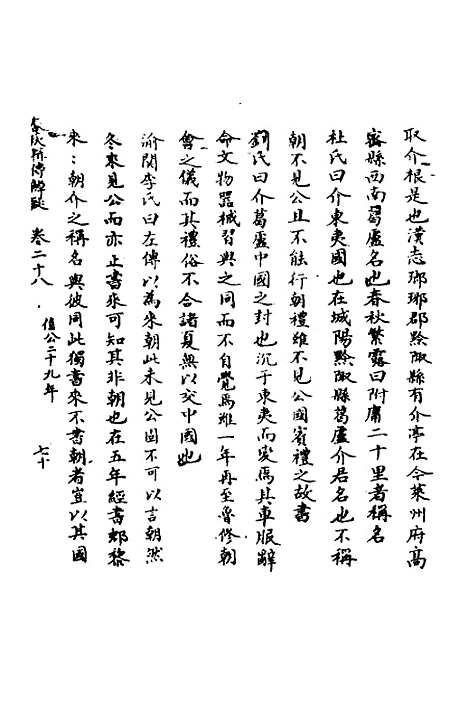 取介根是也漢志瑯琊郡黔陬縣有介亭在今萊州府高
密縣西南葛盧名也春秋繁露曰附庸二十里者稱名
杜氏曰介東夷國也在城陽黔陬縣葛盧介君名也不稱
朝不見公且不能行朝禮雖不見公國賓禮之故書
劉氏曰介葛盧中國之封也沉于東夷而変焉其車服辭
命文物器械習與之同而不自覺焉雖一年再至魯修朝
會之儀而其禮俗不合諸夏無以交中國也
渝関李氏曰左傳以為來朝此未見公固不可以言朝然
冬來見公而亦止書來可知其非朝也在五年經書郳黎
來：朝介之稱名與彼同此獨書來不書朝者豈以其國
春秋析傳辯疑 卷二十八 僖公二十九年 七十